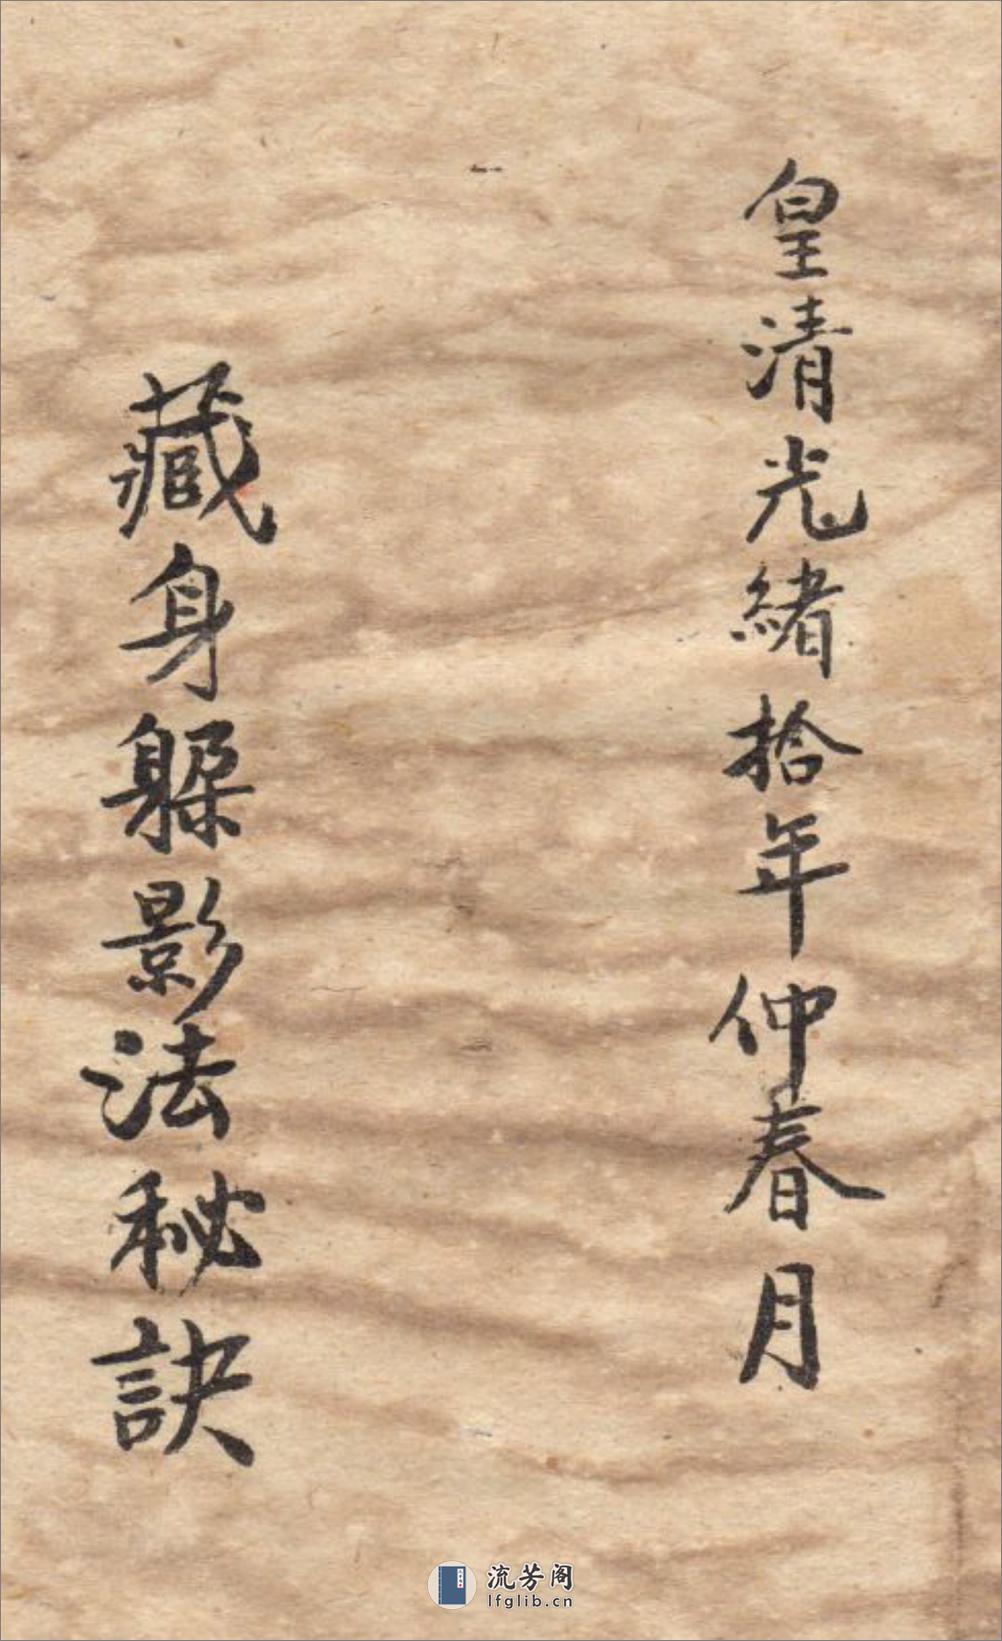 皇清光緒拾年仲春月
藏身躲影法秘訣
流芳阁
lfglib.cn